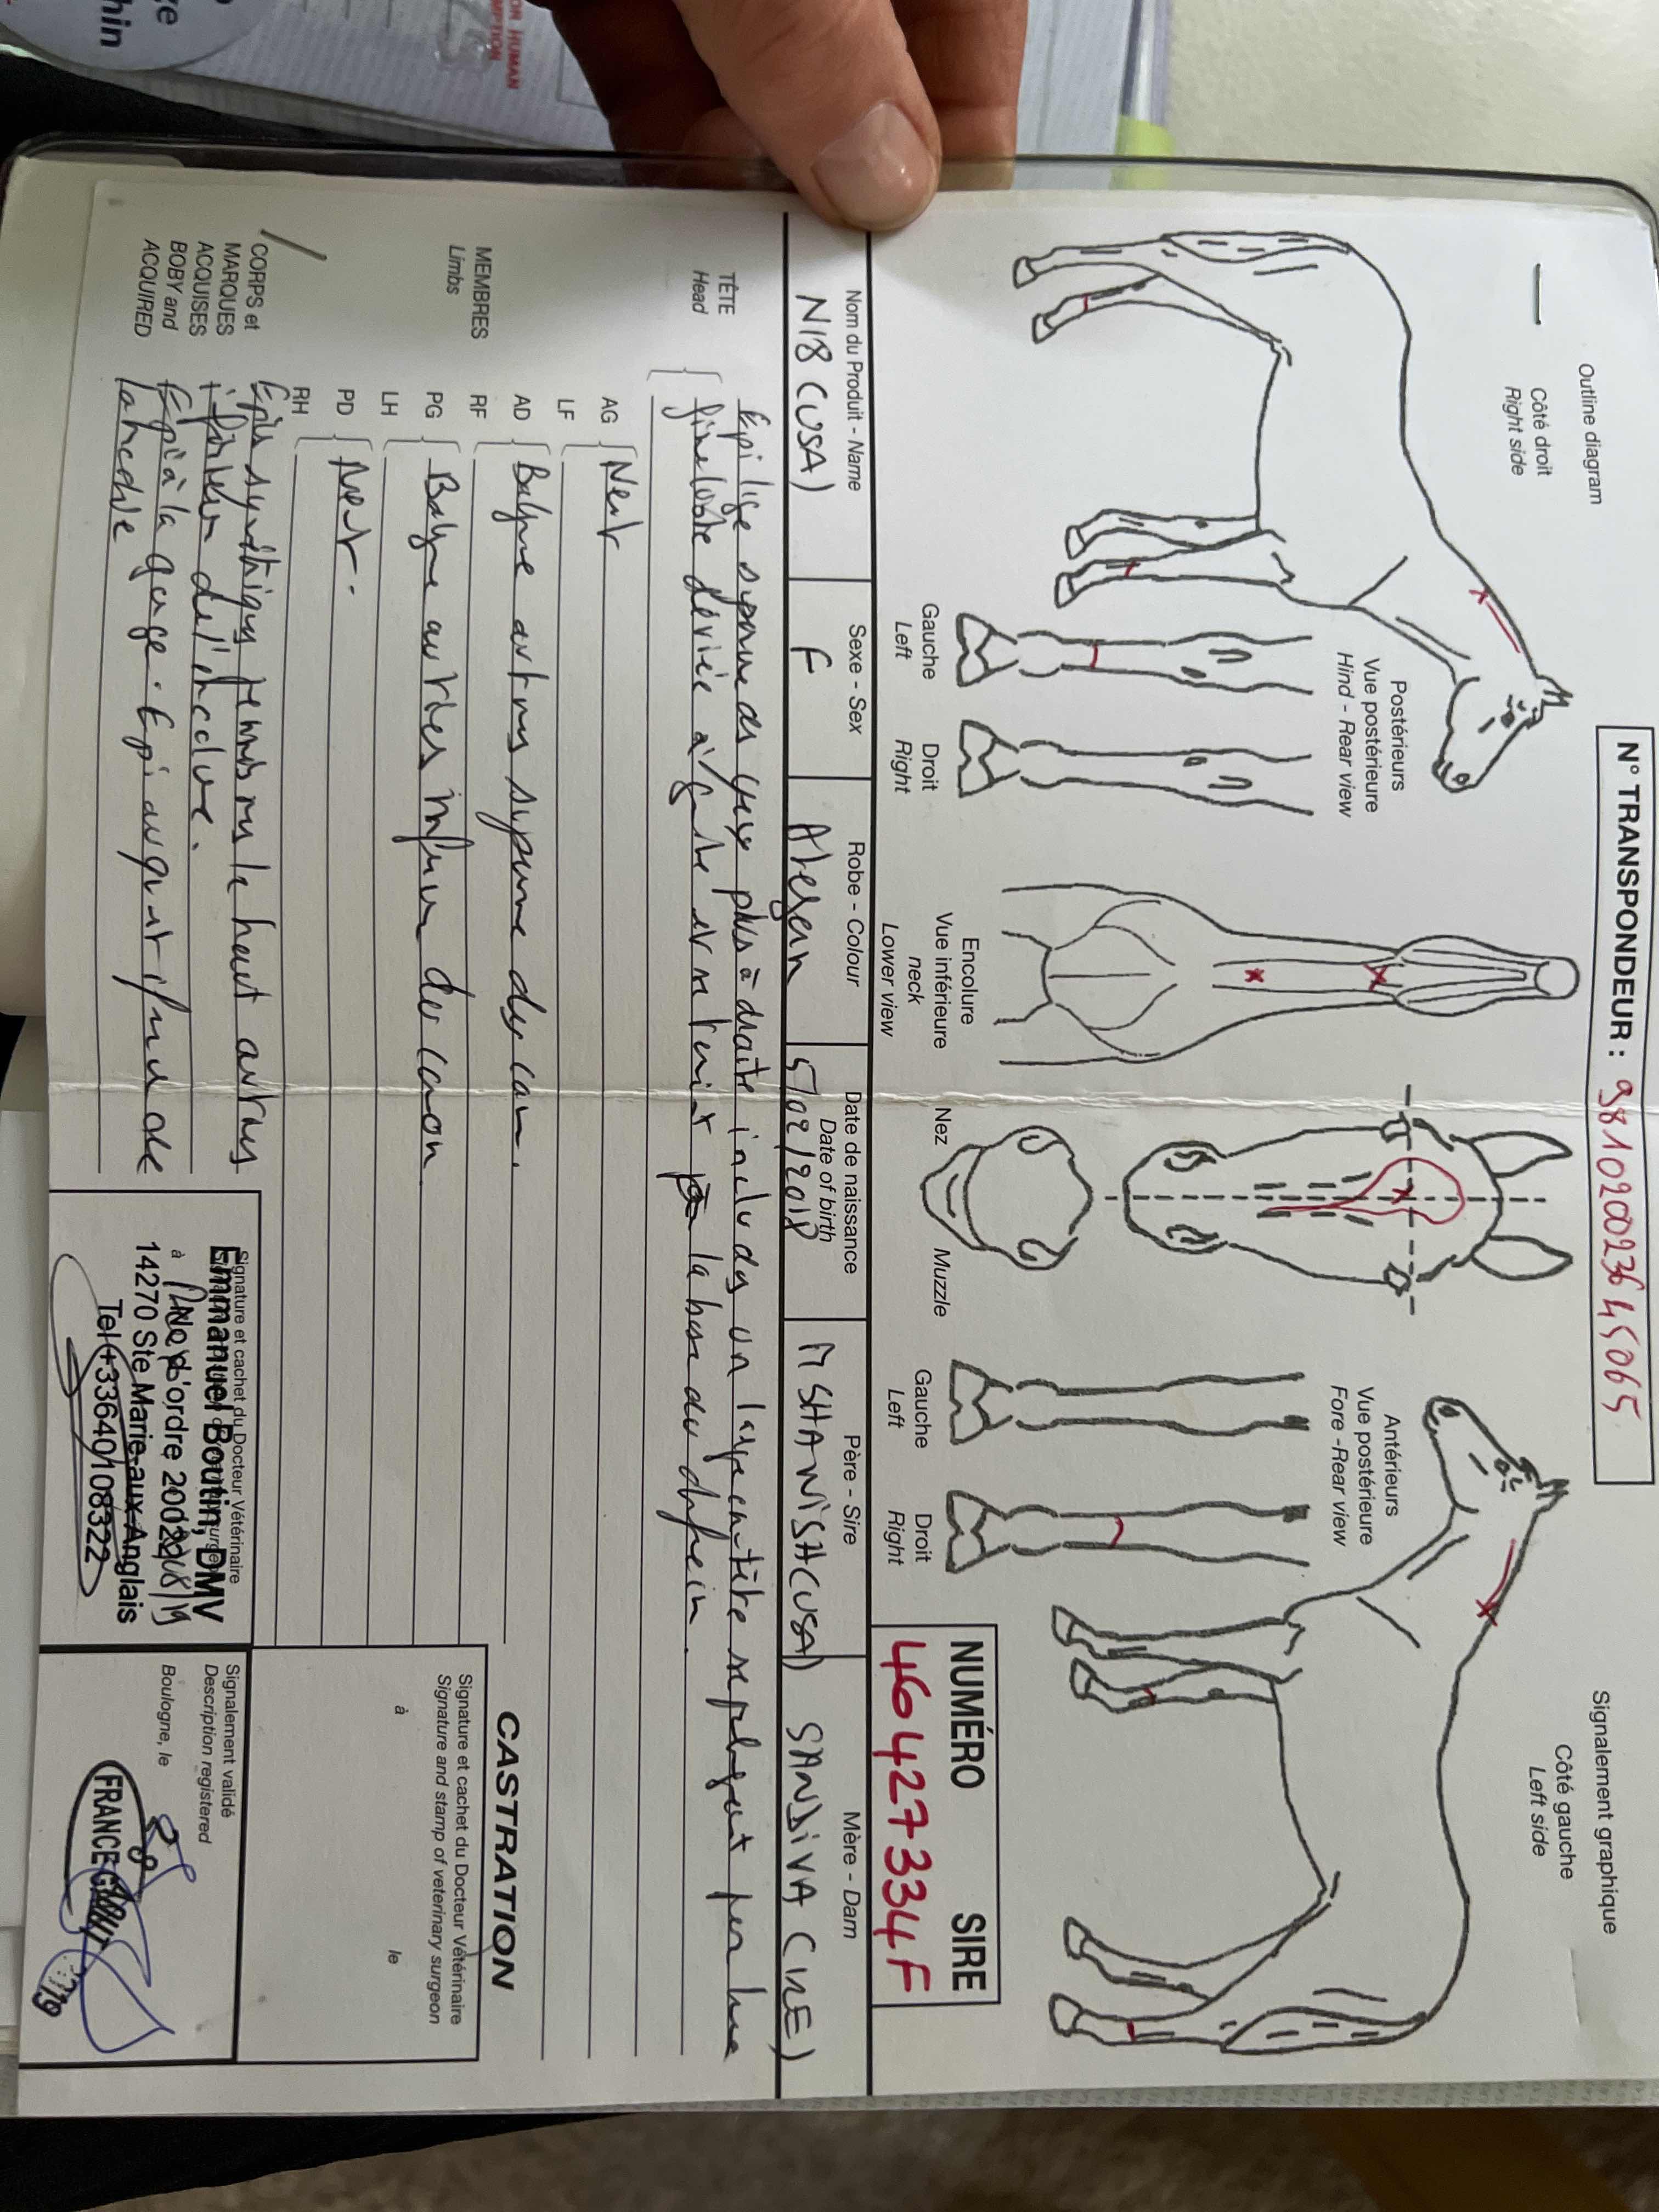 ge
hin
OR HUMAN
MPTION
N° TRANSPONDEUR : 981020023645065
Outline diagram
Signalement graphique
Côté droit
Right side
Côté gauche
Left side
Postérieurs
Vue postérieure
Hind - Rear view
Antérieurs
Vue postérieure
Fore -Rear view
Gauche
Left
Droit
Right
Encolure
Vue inférieure
neck
Lower view
Nez
Muzzle
Gauche
Left
Droit
Right
NUMÉRO SIRE
460427334F
Nom du Produit - Name
Sexe - Sex
Robe - Colour
Date de naissance
Date of birth
Père - Sire
Mère - Dam
N18 (USA)
F
Alezan
5/02/2018
MSHAWISH(USA)
SANDIVA (IRE)
TÊTE
Head
Epi lige supérieure des yeux plus à droite inclu ds un large en tête se prolongeant par une
fine liste déviée à gauche et se terminant à la base du chanfrein.
MEMBRES
Limbs
AG Neut
LF
AD Balzane au tiers supérieur du canon.
RF
PG Balzane au tiers inférieur du canon
LH
PD Neut.
RH
CORPS et
MARQUES
ACQUISES
BOBY and
ACQUIRED
Epis symétriques remontant sur le haut au tiers
inférieur de l'encolure.
Epi à la gorge. Epi au quart inférieur de
l'encolure
CASTRATION
Signature et cachet du Docteur Vétérinaire
Signature and stamp of veterinary surgeon
à
le
Signature et cachet du Docteur Vétérinaire
Emmanuel Boutin, DMV
à
N° d'ordre 20022
14270 Ste Marie-aux-Anglais
Tel +33640108322
Signalement validé
Description registered
Boulogne, le
FRANCE GALOP